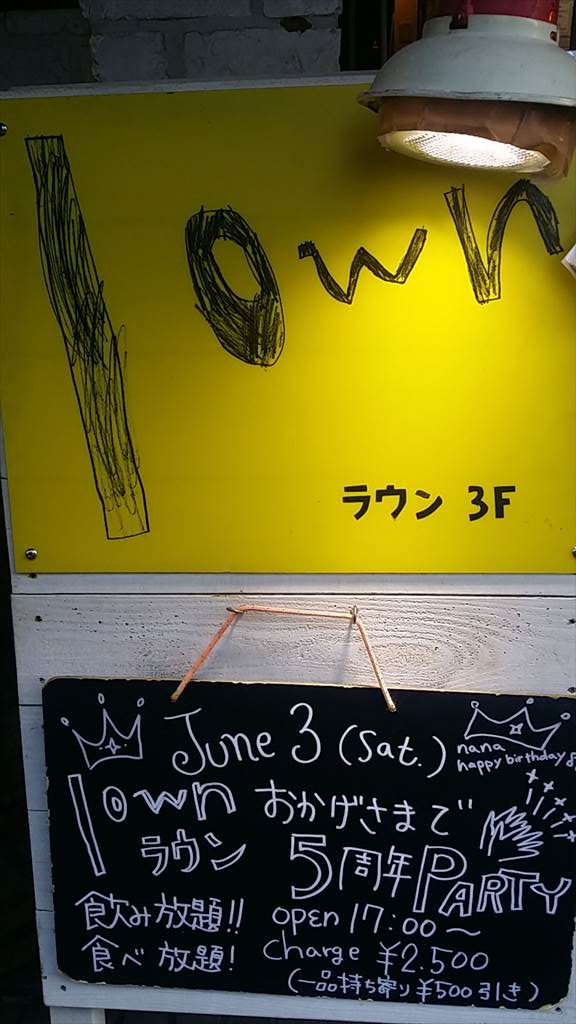 lown
ラウン 3F
June 3 (Sat.)
nana
happy birthday
lown おかげさまで
ラウン 5周年 PARTY
飲み放題!! open 17:00〜
食べ放題! charge ¥2.500
(一品持ち寄り ¥500引き)